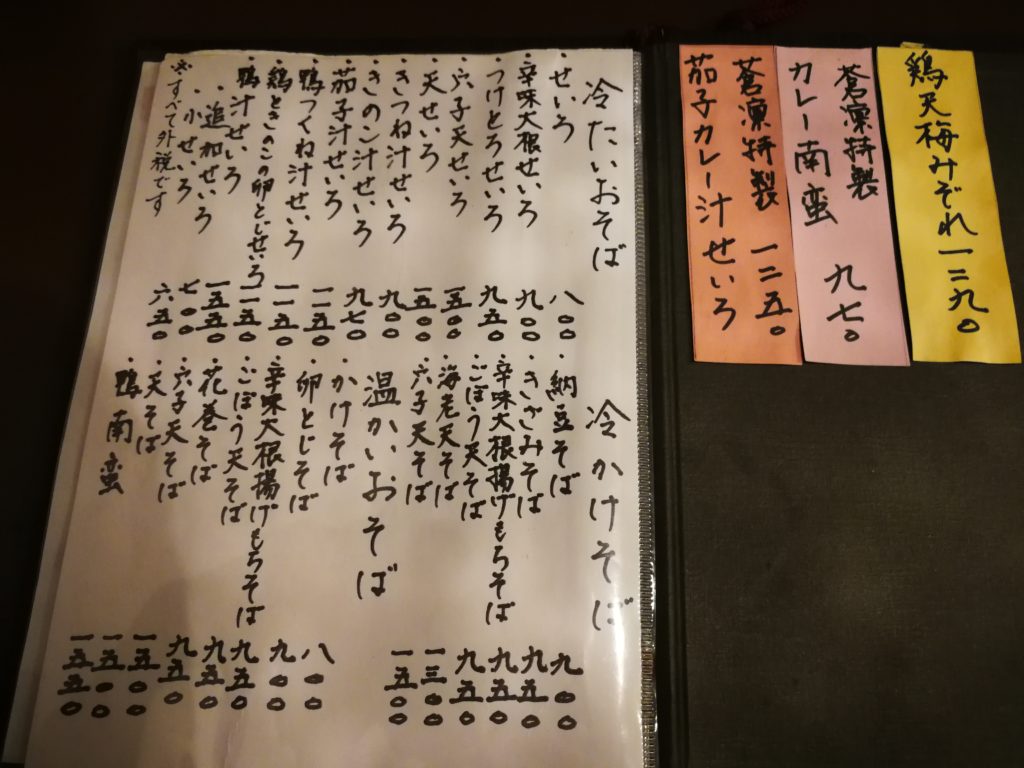 鶏天梅みぞれ一二九〇
蒼凜特製
カレー南蛮 九七〇
蒼凜特製 一二五〇
茄子カレー汁せいろ
冷たいおそば
・せいろ 八〇〇
・辛味大根せいろ 九〇〇
・つけとろせいろ 九五〇
・穴子天せいろ 一五〇〇
・天せいろ 一五〇〇
・きつね汁せいろ 九〇〇
・きのこ汁せいろ 九七〇
・茄子汁せいろ 一二五〇
・鴨つくね汁せいろ 一一五〇
・鶏ときのこの卵とじせいろ 一一五〇
・鴨汁せいろ 一五五〇
・追加せいろ 七〇〇
・小せいろ 六五〇
※すべて外税です
冷かけそば
・納豆そば 九〇〇
・きざみそば 九五〇
・辛味大根揚げもちそば 九五〇
・ごぼう天そば 九五〇
・海老天そば 一三〇〇
・穴子天そば 一五〇〇
温かいおそば
・かけそば 八〇〇
・卵とじそば 九〇〇
・辛味大根揚げもちそば 九五〇
・ごぼう天そば 九五〇
・花巻そば 九五〇
・穴子天そば 一五〇〇
・天そば 一五〇〇
・鴨南蛮 一五五〇